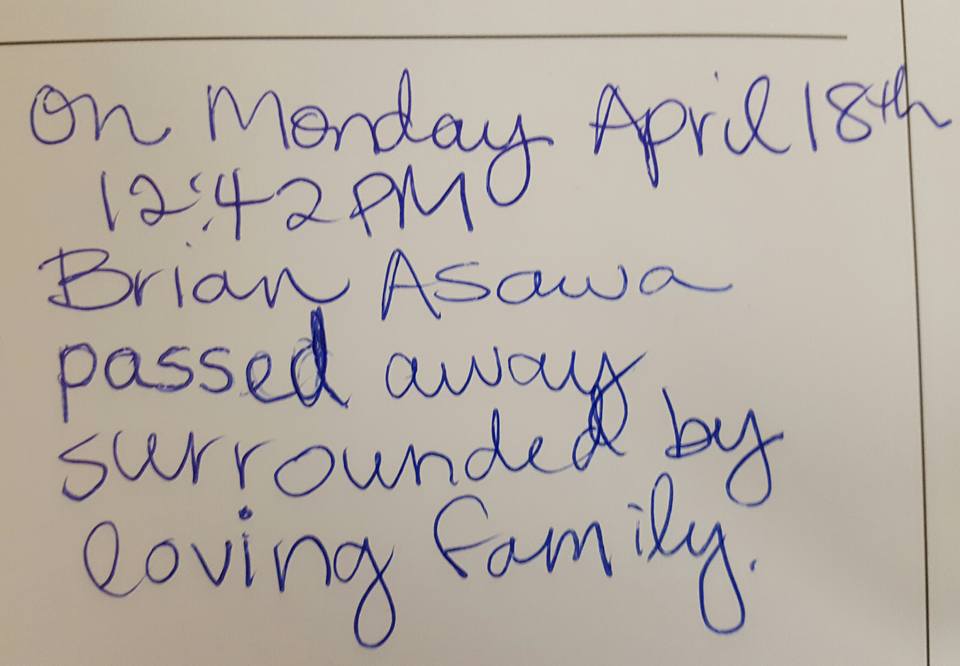 On Monday April 18th
12:42 PM
Brian Asawa
passed away
surrounded by
loving family.